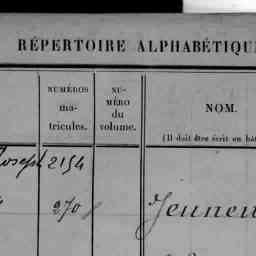 RÉPERTOIRE ALPHABÉTIQU
NUMÉROS
ma-
tricules.
NU-
MÉRO
du
volume.
NOM.
(Il doit être écrit en bât
Joseph 2154
270
Jeuneu